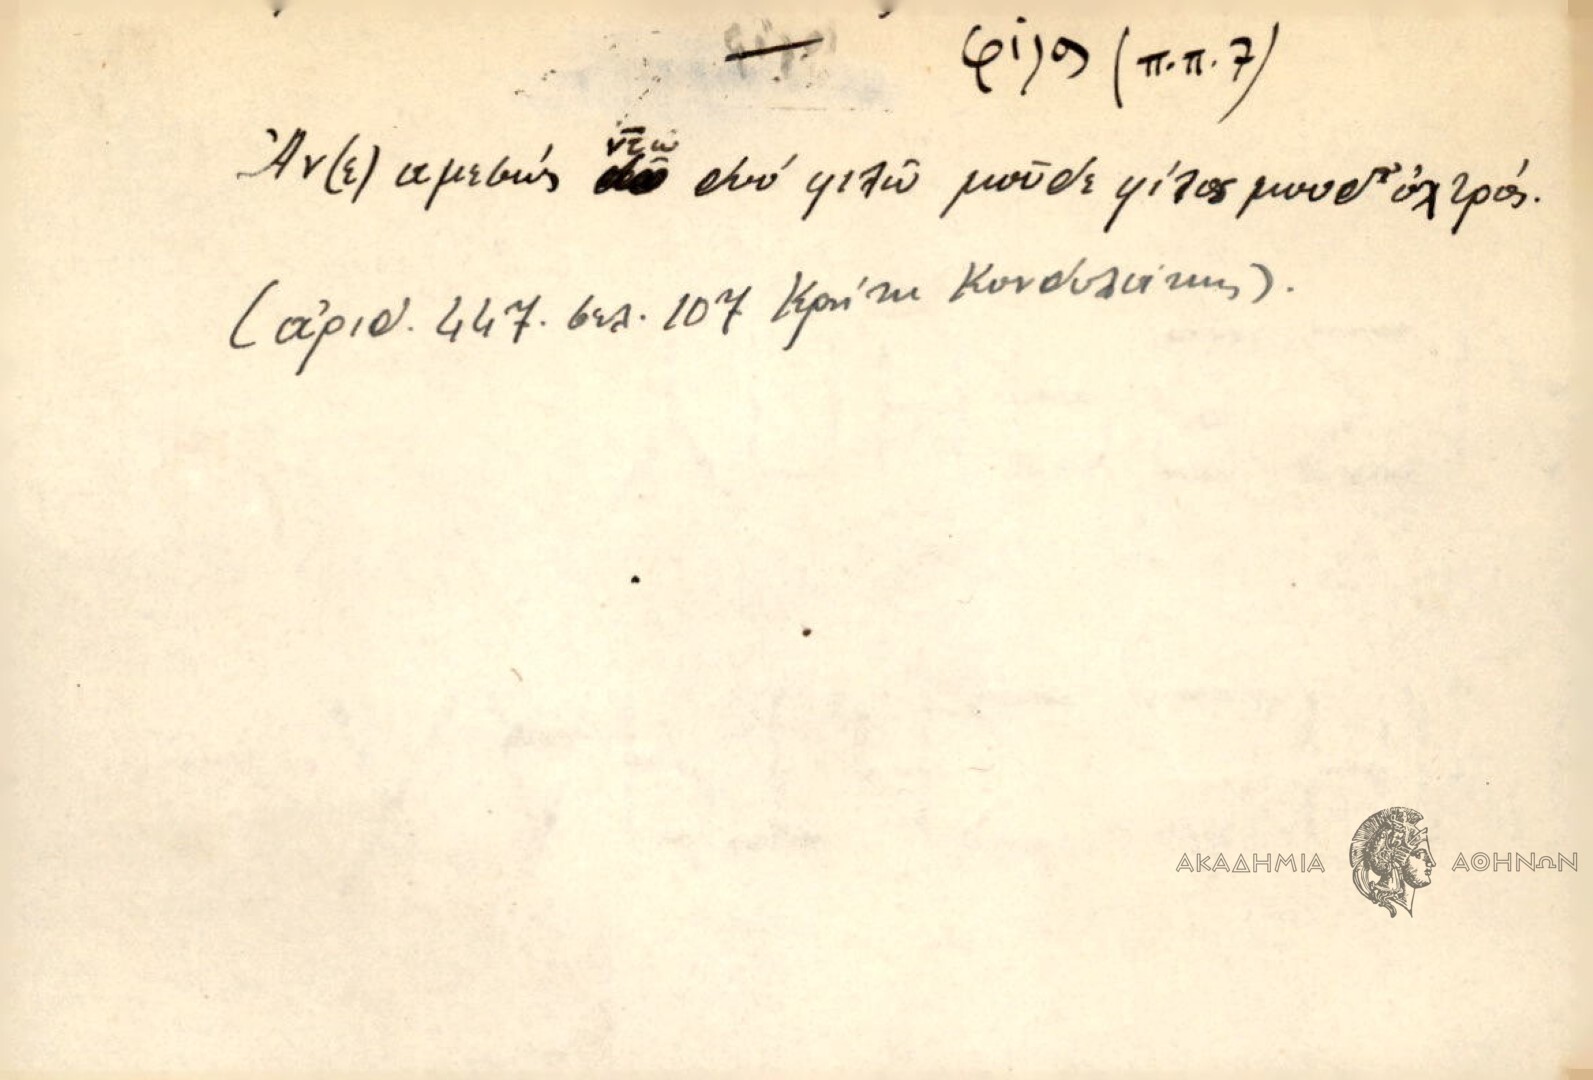 φίλος (π.π. 7)
Ἀν(ε) αμεσώς ντῶ δυό φιλῶ μοῦδε φίλος μουδ' ὀχτρός.
(ἀριθ. 447. σελ. 107 Κρήτη Κονδυλάκης).
ΑΚΑΔΗΜΙΑ ΑΘΗΝΩΝ